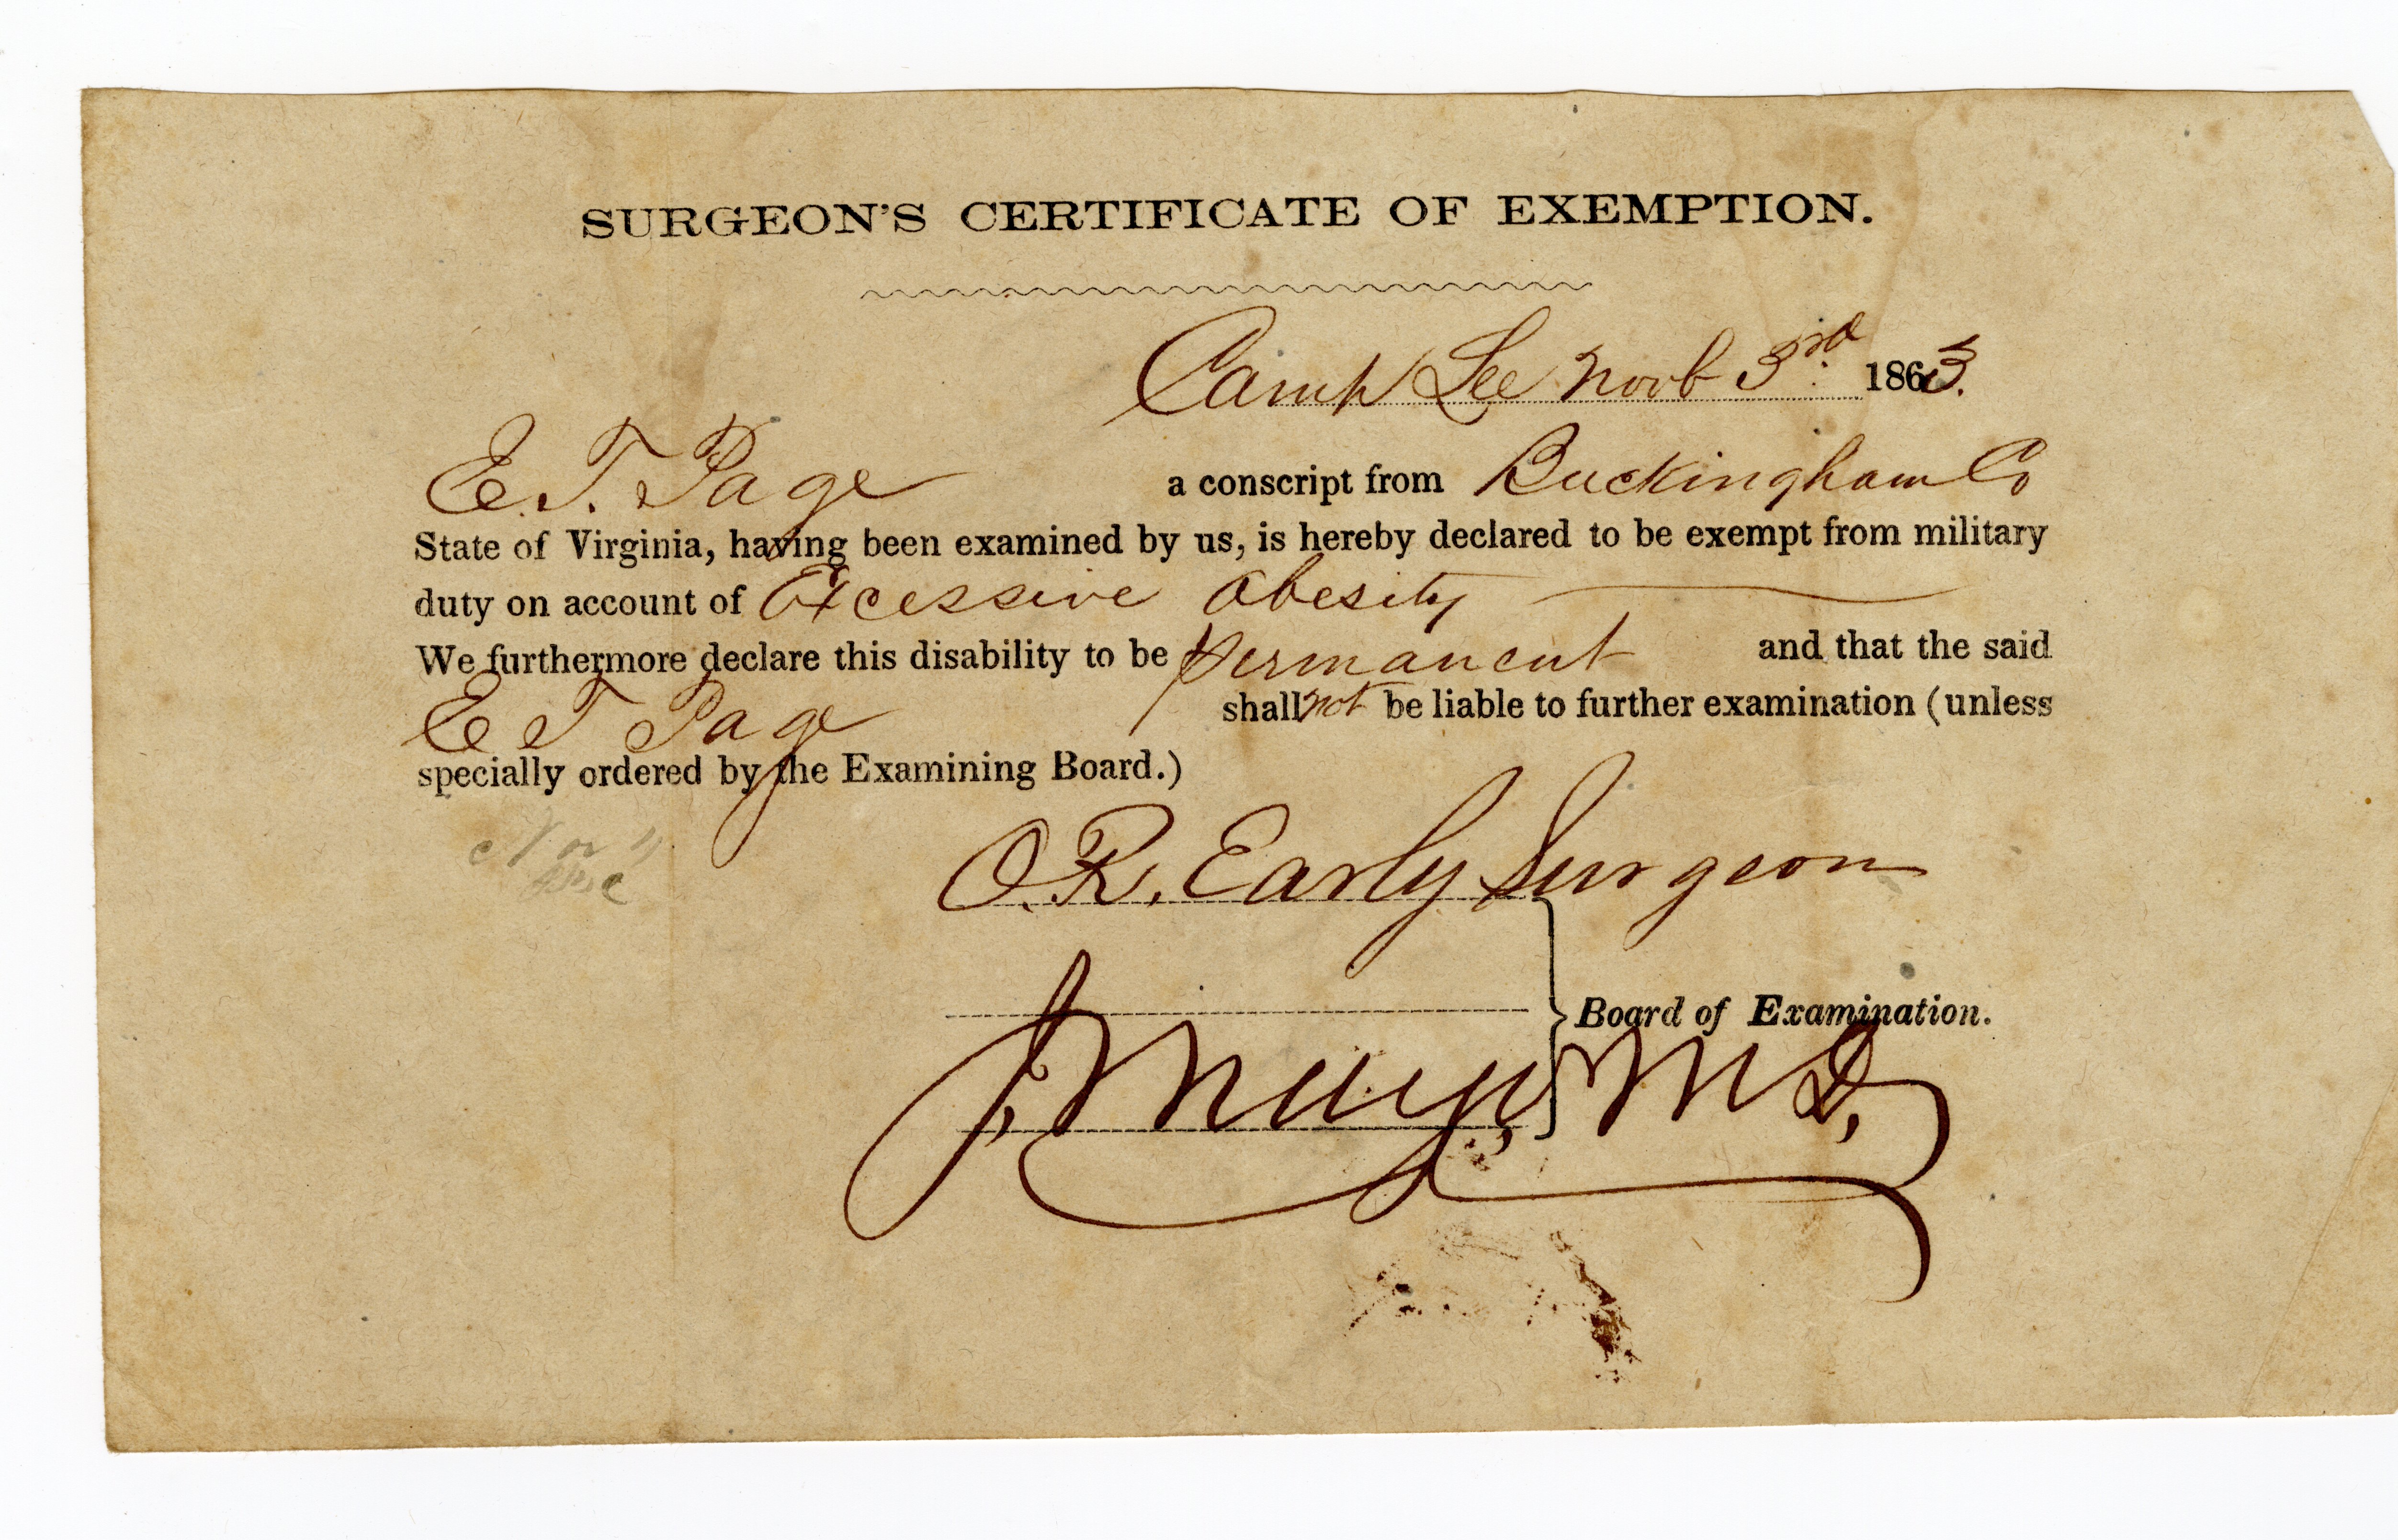 SURGEON'S CERTIFICATE OF EXEMPTION.
Camp Lee Novb 3rd 1863.
E. T. Page a conscript from Buckingham Co
State of Virginia, having been examined by us, is hereby declared to be exempt from military
duty on account of Excessive obesity
We furthermore declare this disability to be permanent and that the said
E T Page shall not be liable to further examination (unless
specially ordered by the Examining Board.)
O. R. Early Surgeon
Board of Examination.
J. M. D.